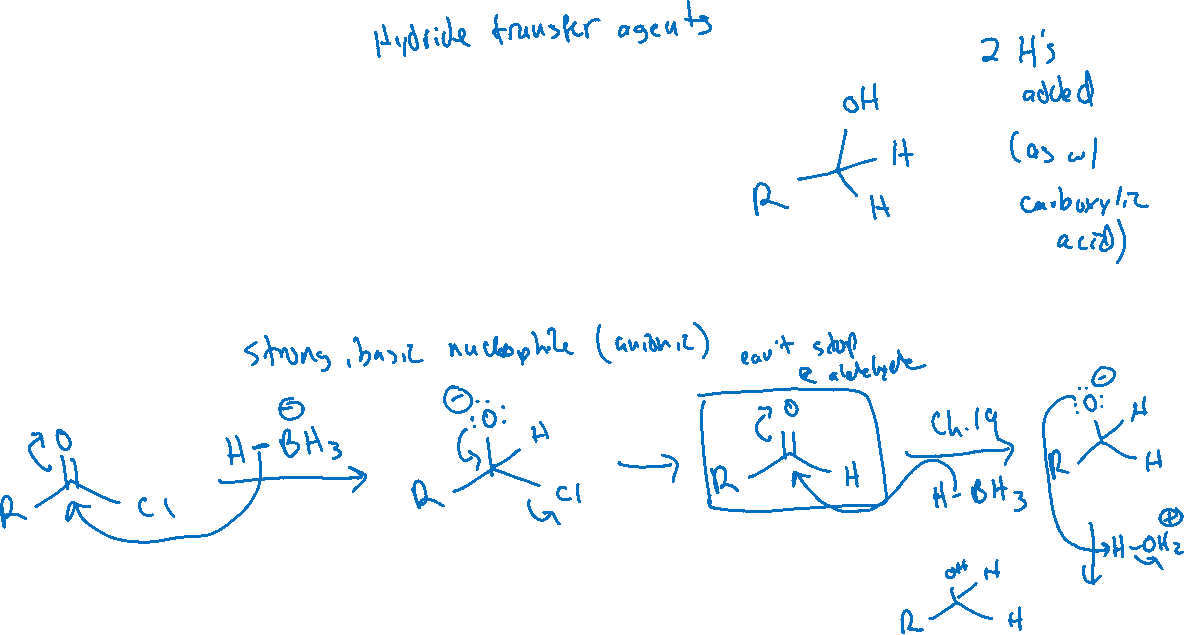 Hydride transfer agents
2 H's
added
(as w/
carboxylic
acid)
OH
H
R
H
strong, basic nucleophile (anionic)
can't stop
@ aldehyde
O
R
Cl
H-BH3
⊖
⊖
:O:
H
R
Cl
O
R
H
Ch. 19
H-BH3
⊖
:O:
H
R
H
H-OH2
⊕
OH
H
R
H